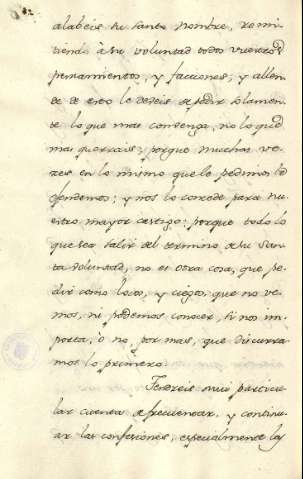 alabeis su santo nombre, remi
tiendo à su voluntad todos vuestros
pensamientos, y facciones, y allen
de de esto le debeis pedir solamen
te lo que mas convenga, no lo que
mas querrais; porque muchas ve
zes en lo mismo que le pedimos le
ofendemos; y nos lo concede para nu
estro mayor castigo: porque todo lo
que sea salir del termino de su San
ta voluntad, no es otra cosa, que pe
dir como locos, y ciegos, que no ve
mos, ni podemos conocer, si nos im
porta, o no, por mas, que discurra
mos lo primero.
Tendreis mui particu
lar cuenta de frecuentar, y continu
ar las confesiones, especialmente los